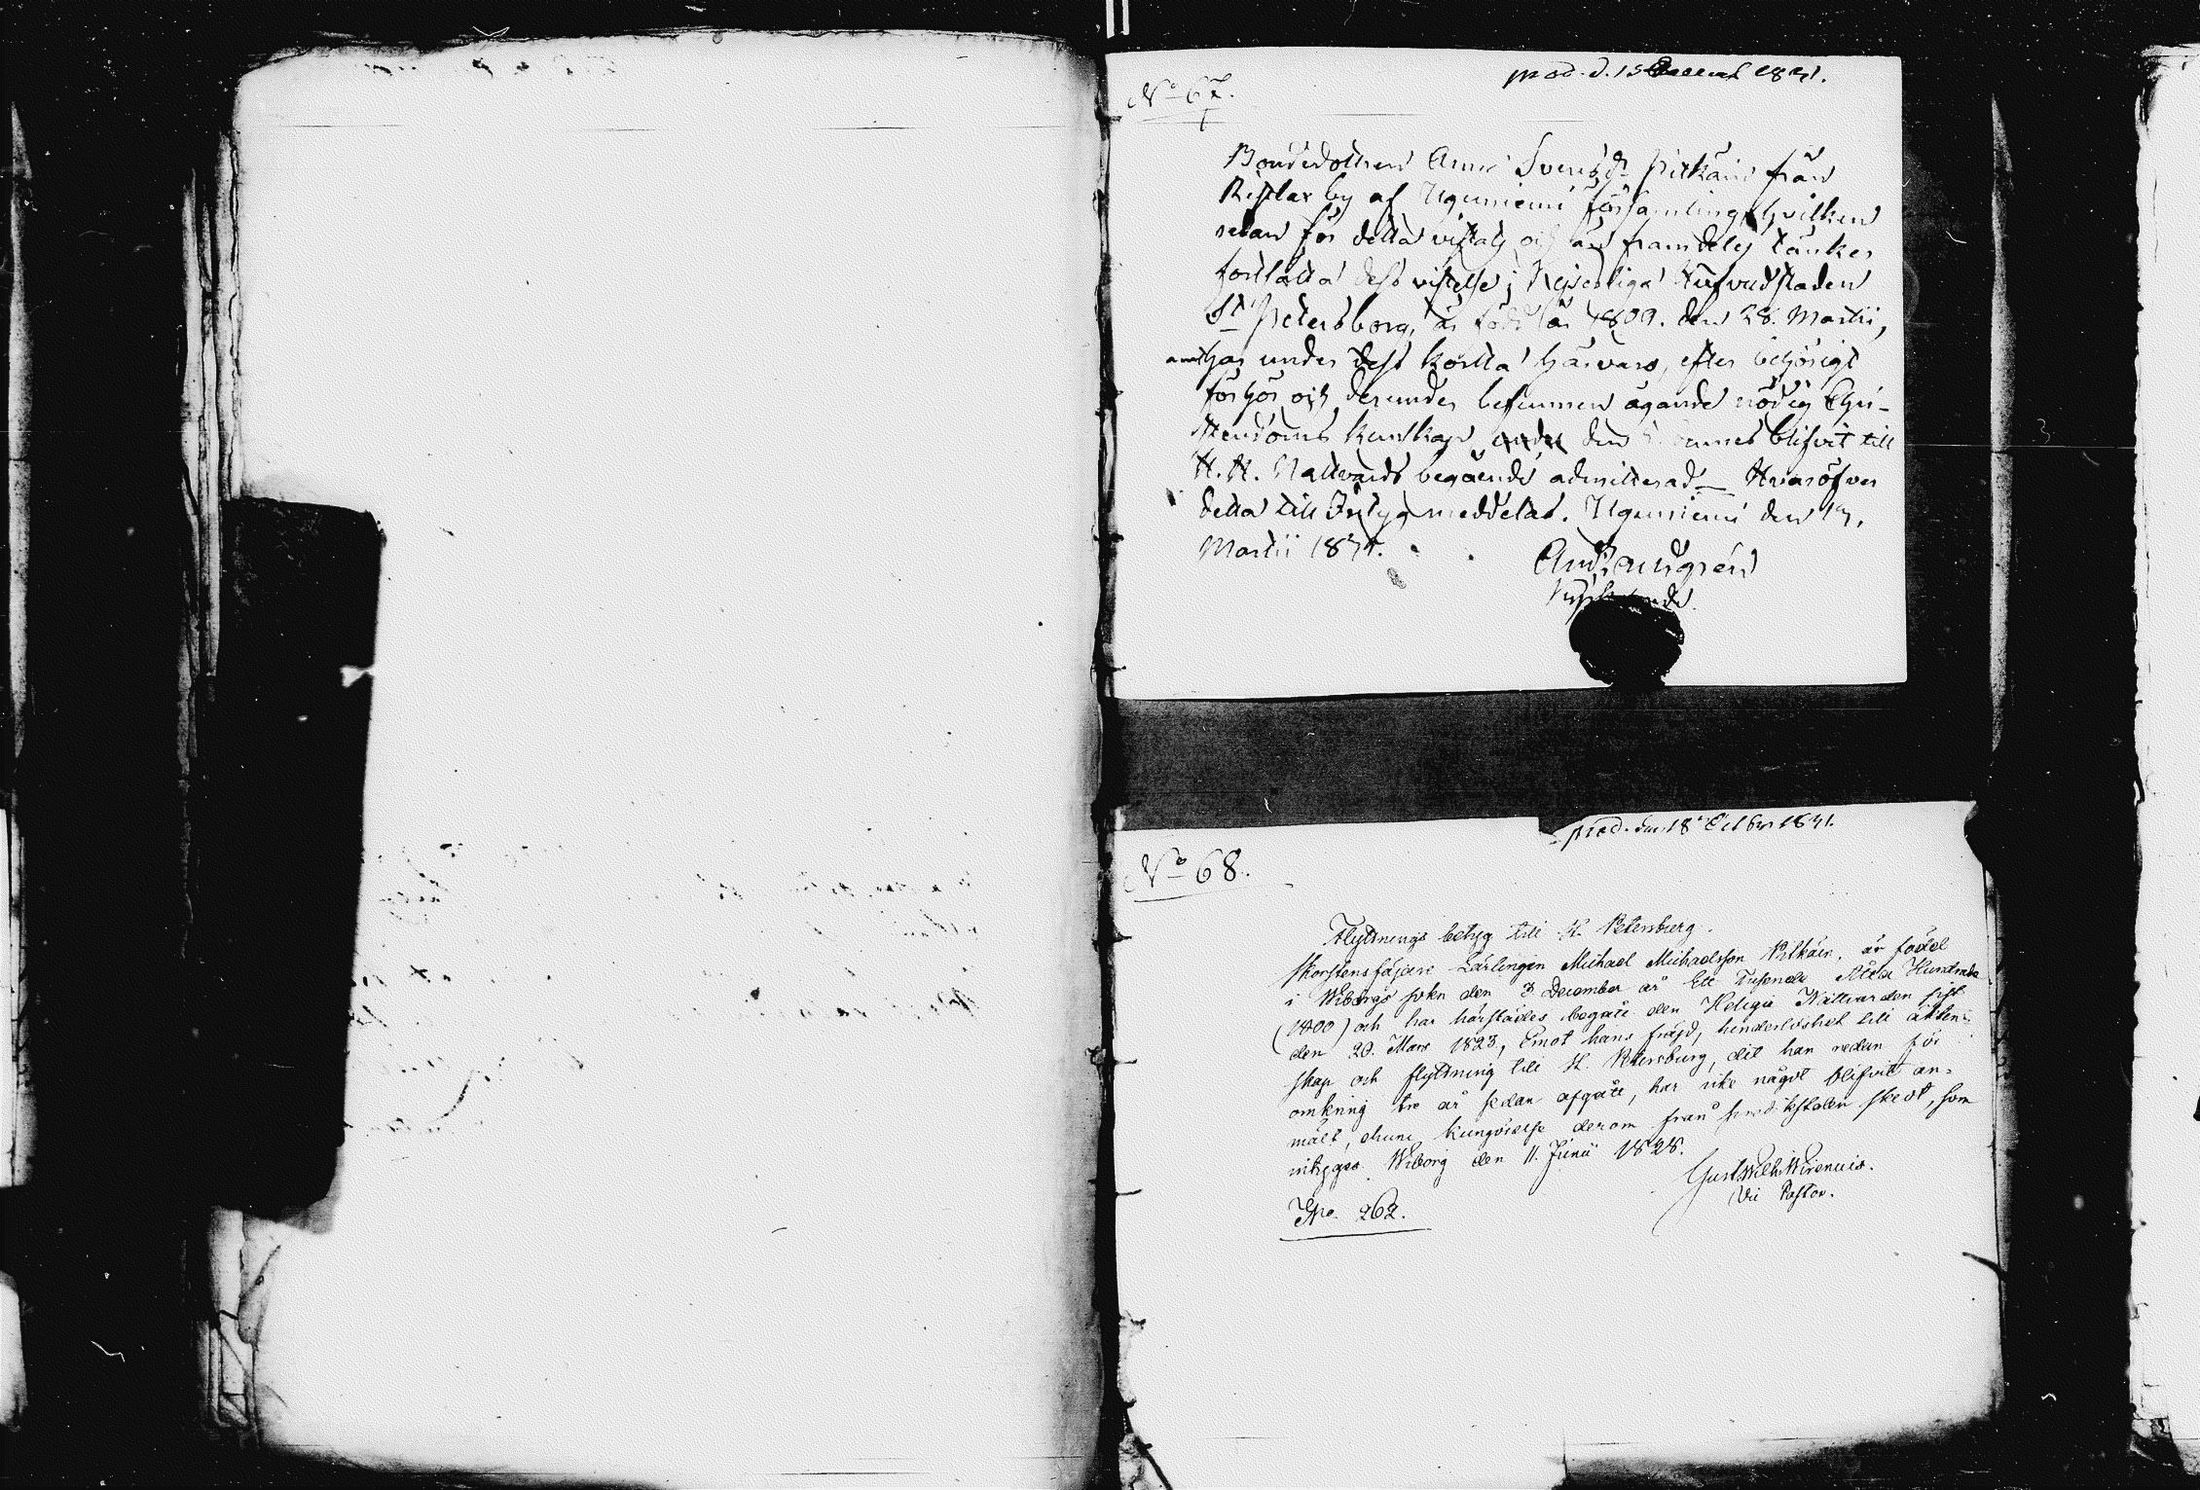 No 67.
prod. d. 15 1831.
Bondedottren Anna Svensdr Pitkäin från
Ristlax by af Uguniemi församling, hvilken
redan för detta vistats och än framdeles tänker
fortsätta dess vistelse i Kejserliga Hufvudstaden
St Petersborg, är född år 1809. den 28. Martii,
har under dess korta härvaro, efter behörigt
förhör och derunder befunnen ägande nödig Chri-
stendoms kunskap, den blifvit till
H. H. Nattvards begående admitterad – Hvaröfver
detta till Intyg meddelas. Uguniemi den
Martii
No 68.
prod. den 18 Octbr 1831.
Flyttnings betyg till St. Petersburg.
Skorstensfäjare Lärlingen Michael Michaelsson Pitkäin, är födel
i Wiborgs sokn den 3 December år Ett Tusende Åtta Hundrade
(1800) och har härstädes begått den Heliga Nattvarden sist
den 20. Mars 1823, Emot hans fräjd, hinderlöshet till äkten-
skap och flyttning till St. Petersburg, dit han redan för
omkring tre år sedan afgått, har icke något blifvit an-
mält, ehuru kungörelse derom från predikstolen skedt, som
intygas. Wiborg den 11. Junii 1828.
Gust. Wilh. Wirenius.
Vice Pastor.
No. 262.